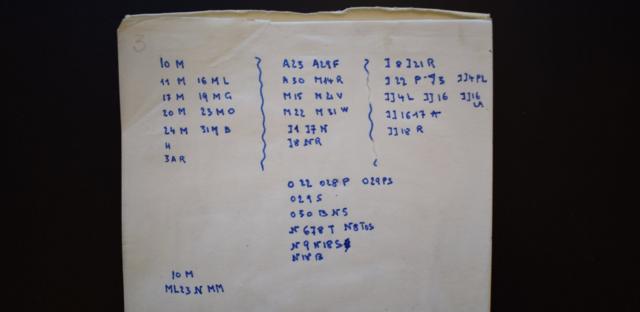 3
10 M
11 M 16 M L
17 M 19 M G
20 M 23 M O
24 M 31 M B
H
3 A R
A 23 A 29 F
A 30 M 14 R
M 15 M 21 V
M 22 M 31 W
J 1 J 7 N
J 8 N R
J 8 J 21 R
J 22 P JJ 4 PL
JJ 4 L JJ 16 JJ 16
JJ 16 17 A
JJ 18 R
O 22 O 28 P O 29 PS
O 29 S
O 30 B N 5
N 6 7 8 T N 8 TOS
N 9 N 18 S
N 18 B
10 M
ML 23 N MM